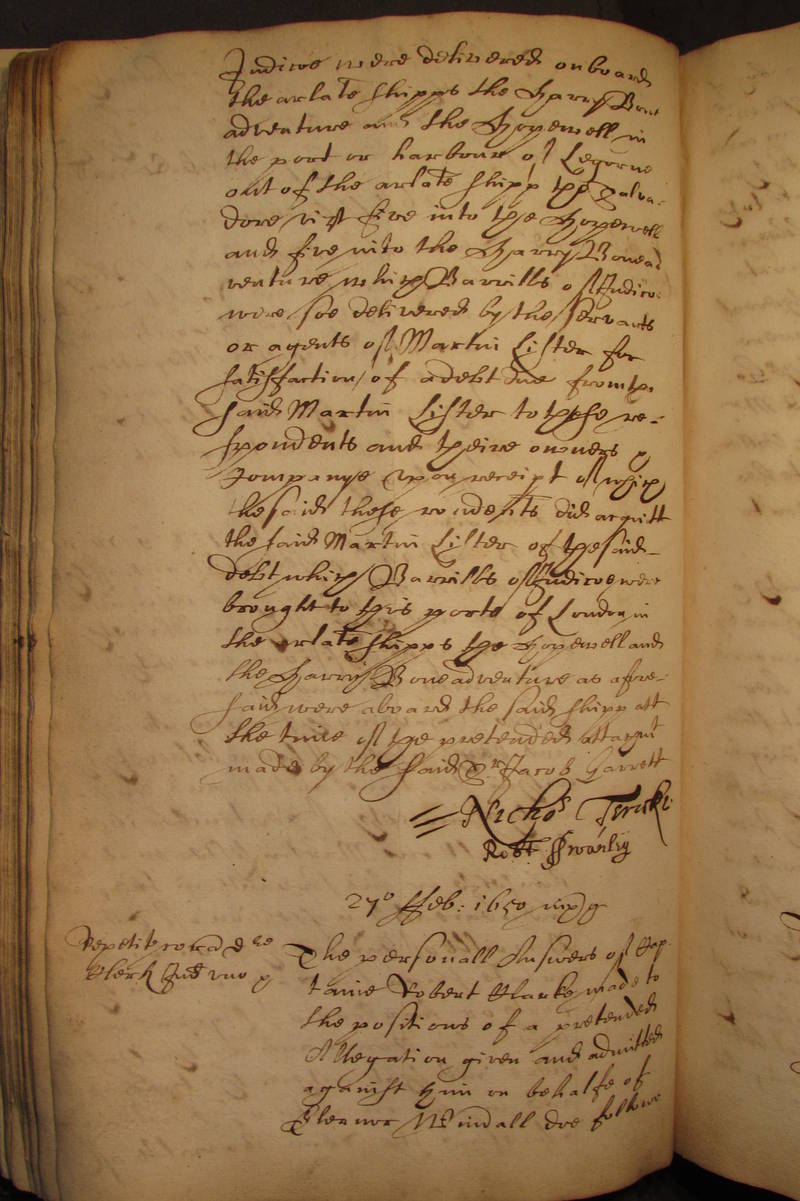 Indicoe were delivered onboard
the arlate shipps the Harry Bone
adventure and the Hopewell in
the port or harbour of Legorne
out of the arlate shipp the Salva-
dore vizt five into the Hopewell
and five into the Harry Bonead
venture which Barrills of Indico
were soe delivered by the servants
or agents of Martin Lister for
satisfaction of a debt due from the
said Martin Lister to these re-
spondents and theire owners &
Companye upon receipt of which
the said these rondents did acquitt
the said Martin Lister of the said
debt which Barrills of Indicoe were
brought to this porte of London in
the arlate shipps the Hopewell and
the Harry Boneadventure as afore-
said were aboard the said shipp att
the time of the pretended attachmt
made by the said Jacob Garrett
Nichos Terick
Robt Swanley
27o ffeb: 1650
The personall Answers of Cap-
taine Robert Clarke made to
the positions of a pretended
Allegation given and admitted
against him on behalfe of
Elernor Windall doe followe